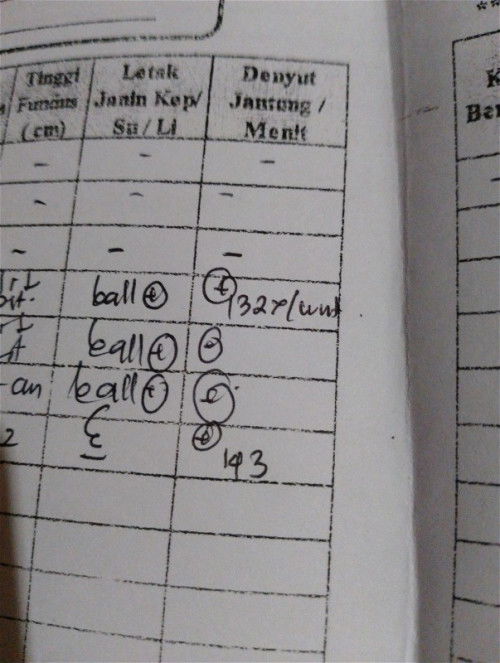 Tinggi Fundus (cm)
Letak Janin Kep/ Su/Li
Denyut Jantung / Menit
K
Ber
- - -
- - -
- - -
ball + + 132x/mnt
ball + +
-an ball + +
2 + 143